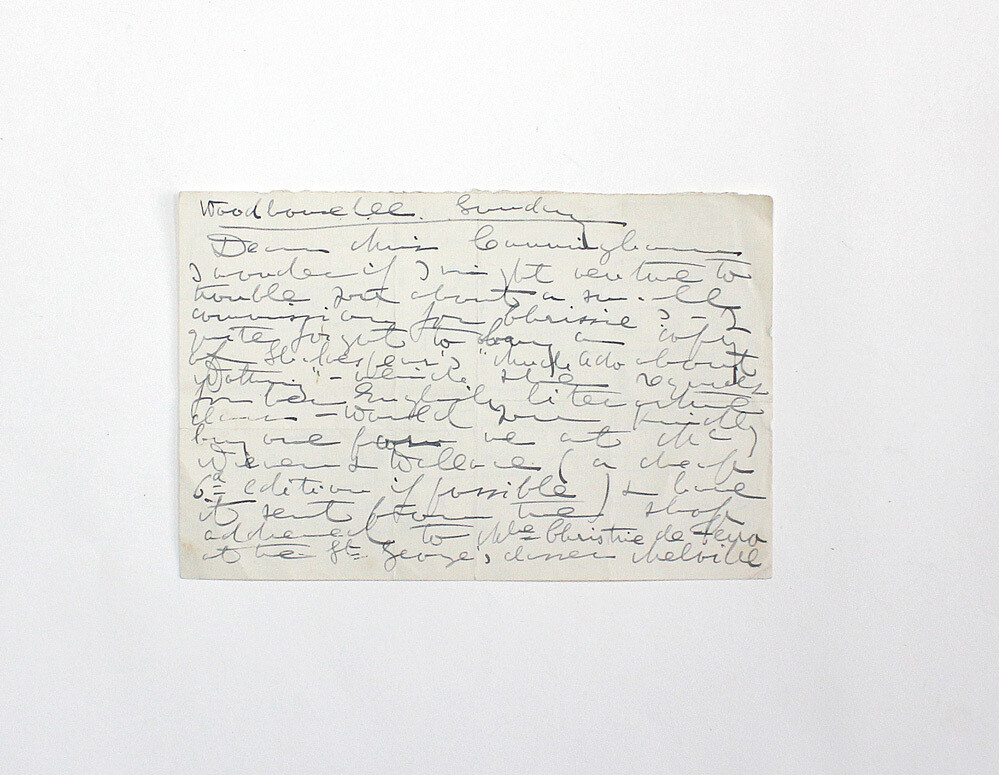 Woodhouselee. Sunday
Dear Miss Cunningham
I wonder if I might venture to
trouble you about a small
commission for Chrissie? - I
quite forgot to buy a copy
of Shakespear's "Much Ado about
Nothing" - which she requires
for her English literature
class - Would you kindly
buy one for me at Mc
Niven & Wallace (a cheap
6d edition if possible) & have
it sent from the shop
addressed to Mlle Christie de
at the St. George's classes Melville